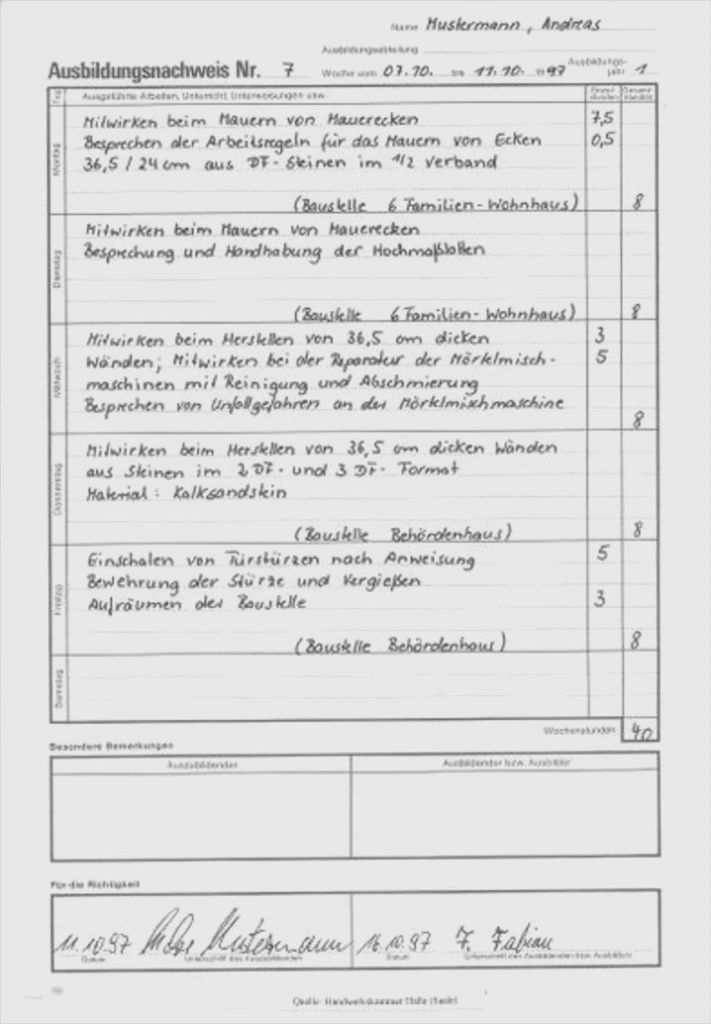 Name Mustermann, Andreas
Ausbildungsabteilung
Ausbildungsnachweis Nr. 7 Woche vom 07.10. bis 11.10. 1997 Ausbildungs-
jahr 1
Tag Ausgeführte Arbeiten, Unterricht, Unterweisungen usw. Einzel-
stunden Gesamt-
stunden
Montag
Mitwirken beim Mauern von Mauerecken 7,5
Besprechen der Arbeitsregeln für das Mauern von Ecken 0,5
36,5 / 24 cm aus DF-Steinen im 1/2 Verband
(Baustelle 6 Familien-Wohnhaus) 8
Dienstag
Mitwirken beim Mauern von Mauerecken
Besprechung und Handhabung der Hochmaßlatten
(Baustelle 6 Familien-Wohnhaus) 8
Mittwoch
Mitwirken beim Herstellen von 36,5 cm dicken 3
Wänden; Mitwirken bei der Reparatur der Mörtelmisch- 5
maschinen mit Reinigung und Abschmierung
Besprechen von Unfallgefahren an der Mörtelmischmaschine
8
Donnerstag
Mitwirken beim Herstellen von 36,5 cm dicken Wänden
aus Steinen im 2 DF- und 3 DF-Format
Material: Kalksandstein
(Baustelle Behördenhaus) 8
Freitag
Einschalen von Türstürzen nach Anweisung 5
Bewehrung der Stürze und Vergießen
Aufräumen der Baustelle 3
(Baustelle Behördenhaus) 8
Samstag
Wochenstunden 40
Besondere Bemerkungen
Auszubildender Ausbildender bzw. Ausbilder
Für die Richtigkeit
11.10.97 Mustermann 16.10.97 F. Fabian
Datum Unterschrift des Auszubildenden Datum Unterschrift des Ausbildenden bzw. Ausbilders
Quelle: Handwerkskammer Halle (Saale)